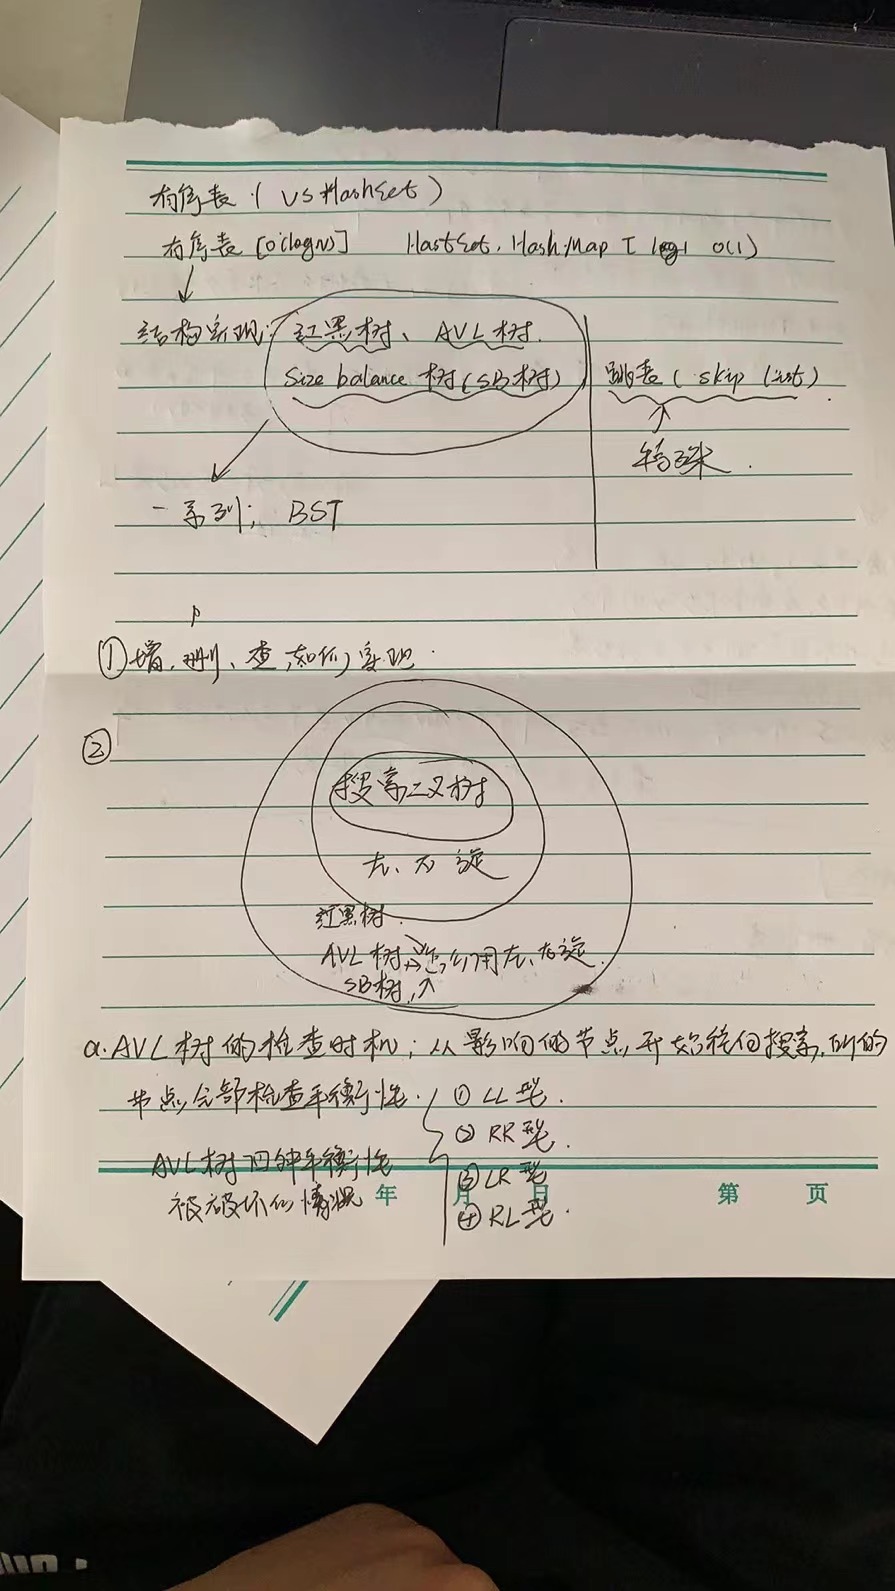 有序表(VS HashSet)
有序表[O(logN)] HastSet、HashMap [ O(1)
结构实现:红黑树、AVL树.
Size balance 树(SB树) 跳表(skip list).
特殊.
一系列: BST
①增、删、查 如何实现.
②
搜索二叉树
左、右旋
红黑树
AVL树 用左、右旋.
SB树
a.AVL树的检查时机:从影响的节点开始往回搜索,所的
节点全部检查平衡性. ①LL型.
②RR型.
AVL树四种平衡性 ③LR型
被破坏的情况 ④RL型.
年 月 日 第 页